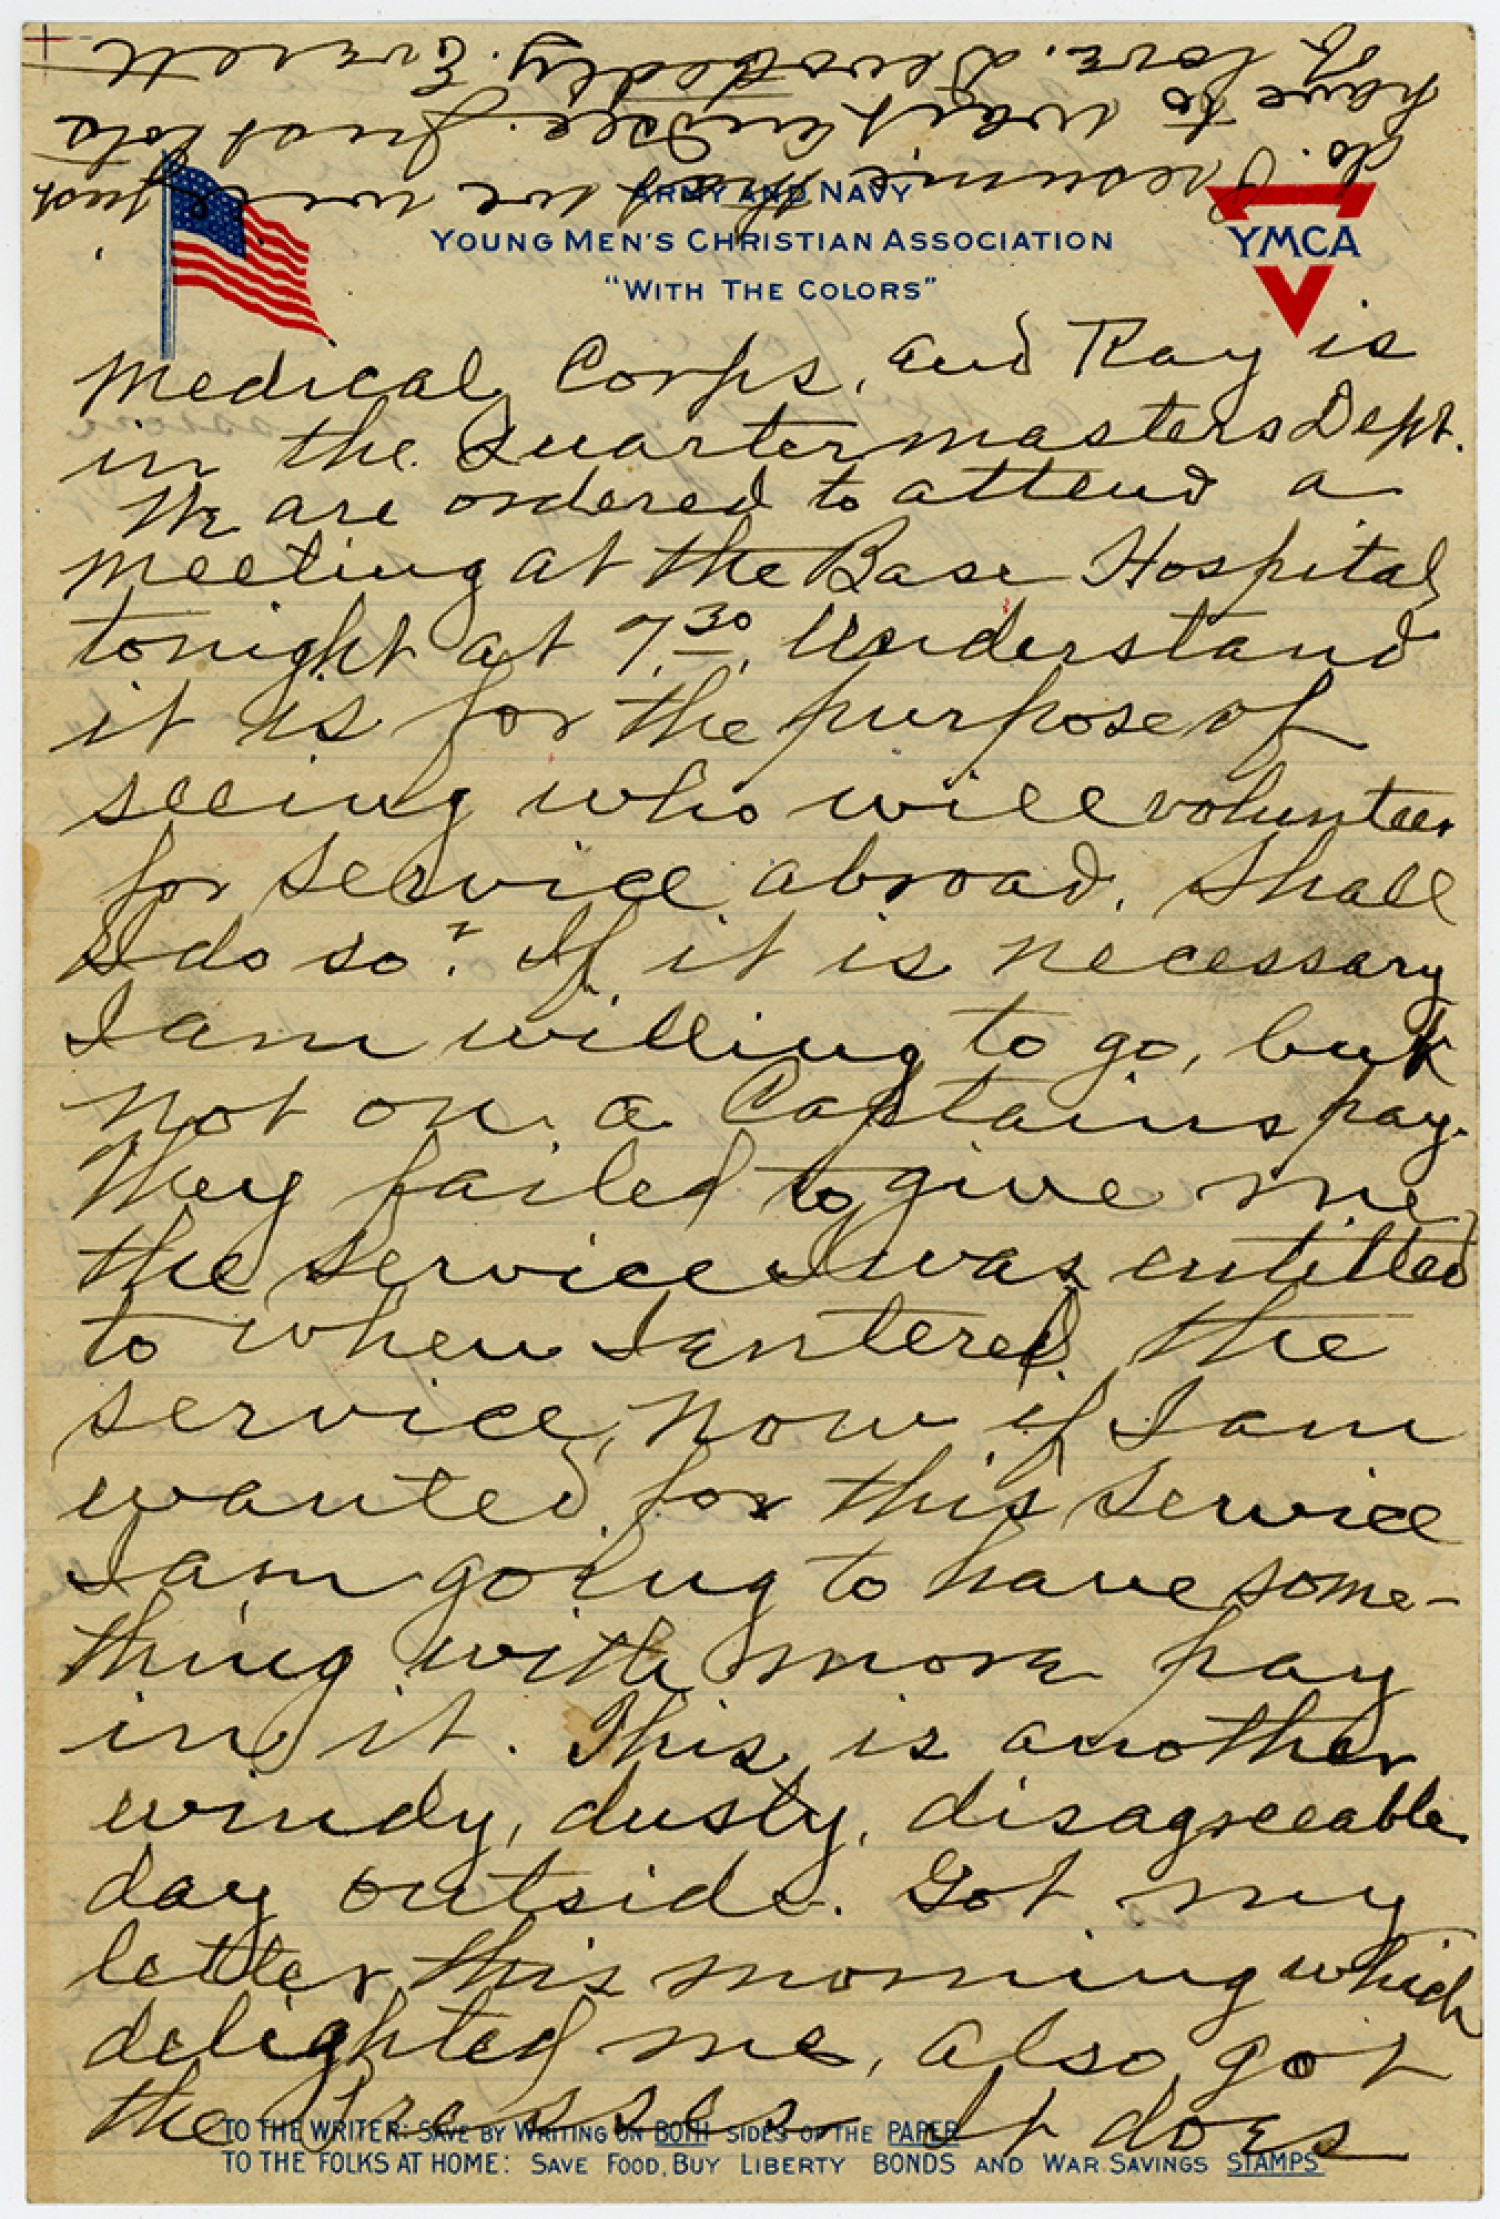 ARMY AND NAVY
YOUNG MEN'S CHRISTIAN ASSOCIATION
"WITH THE COLORS"
YMCA
Medical Corps, and Ray is
in the Quartermasters Dept.
We are ordered to attend a
meeting at the Base Hospital
tonight at 7.30. Understand
it is for the purpose of
seeing who will volunteer
for service abroad. Shall
I do so? If it is necessary
I am willing to go, but
not on a Captains pay.
They failed to give me
the service I was entitled
to when I entered the
service, now if I am
wanted for this service
I am going to have some-
thing with more pay
in it. This is another
windy, dusty, disagreeable
day outside. Got my
letter this morning which
delighted me, also got
the Presses. It does
TO THE WRITER: SAVE BY WRITING ON BOTH SIDES OF THE PAPER
TO THE FOLKS AT HOME: SAVE FOOD, BUY LIBERTY BONDS AND WAR SAVINGS STAMPS
do. Presume that we will just
have to wait and see. Just lots
of love. Devotedly. Everett